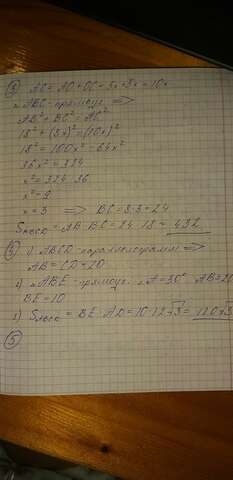 ③ AC = AO + OC = 5x + 5x = 10x
△ABC - прямоуг. ⟹
AB² + BC² = AC²
18² + (8x)² = (10x)²
18² = 100x² - 64x²
36x² = 324
x² = 324 : 36
x² = 9
x = 3 ⟹ BC = 8·3 = 24
S = AB · BC = 24 · 18 = 432
④ 1) ABCD - параллелограмм ⟹
AB = CD = 20
2) △ABE - прямоуг. ∠A = 30° AB = 20
BE = 10
3) S = BE · AD = 10 · 12√3 = 120√3
⑤